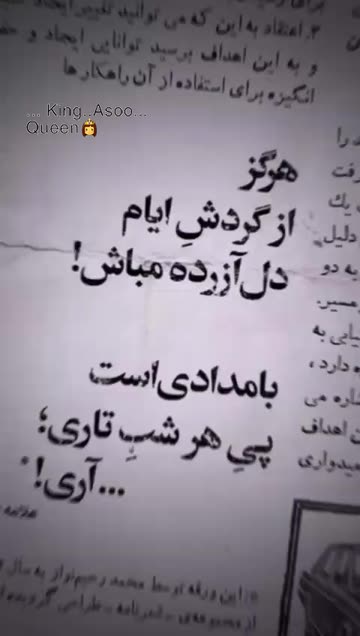 ۲. اعتقاد به این که می توانید تغییر ایجاد
و به این اهداف برسید توانایی ایجاد و
انگیزه برای استفاده از آن راهکارها
... King..Asoo...
Queen👸
هرگز
از گردشِ ایام
دل آزرده مباش!
بامدادی است
پیِ هر شبِ تاری؛
...آری!*
را
یك
دلیل
به دو
به
دارد،
می
اهداف
علامه
این ورقه توسط محمد رحیم‌نواز به سال
از مجموعه‌ی
طراحی گردیده